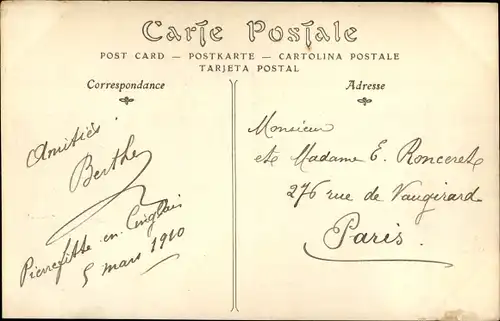 Carte Postale
POST CARD — POSTKARTE — CARTOLINA POSTALE
TARJETA POSTAL
Correspondance
Amitiés
Berthe
Pierrefitte-en-Cinglais
5 mars 1910
Adresse
Monsieur
et Madame E. Ronceret
276 rue de Vaugirard
Paris.